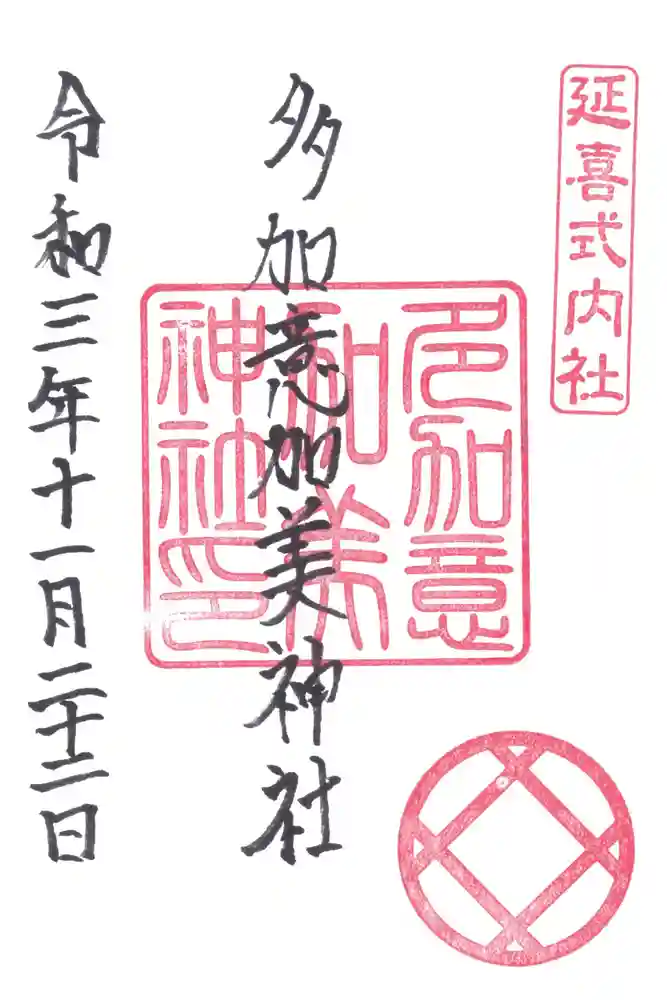 延喜式内社
多加意
加美
神社印
多加意加美神社
令和三年十一月二十二日